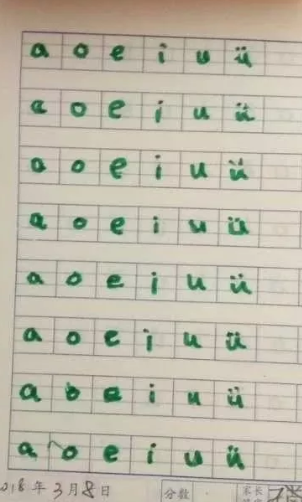 a o e i u ü
a o e i u ü
a o e i u ü
a o e i u ü
a o e i u ü
a o e i u ü
a o e i u ü
a o e i u ü
2018年3月8日 分数 家长